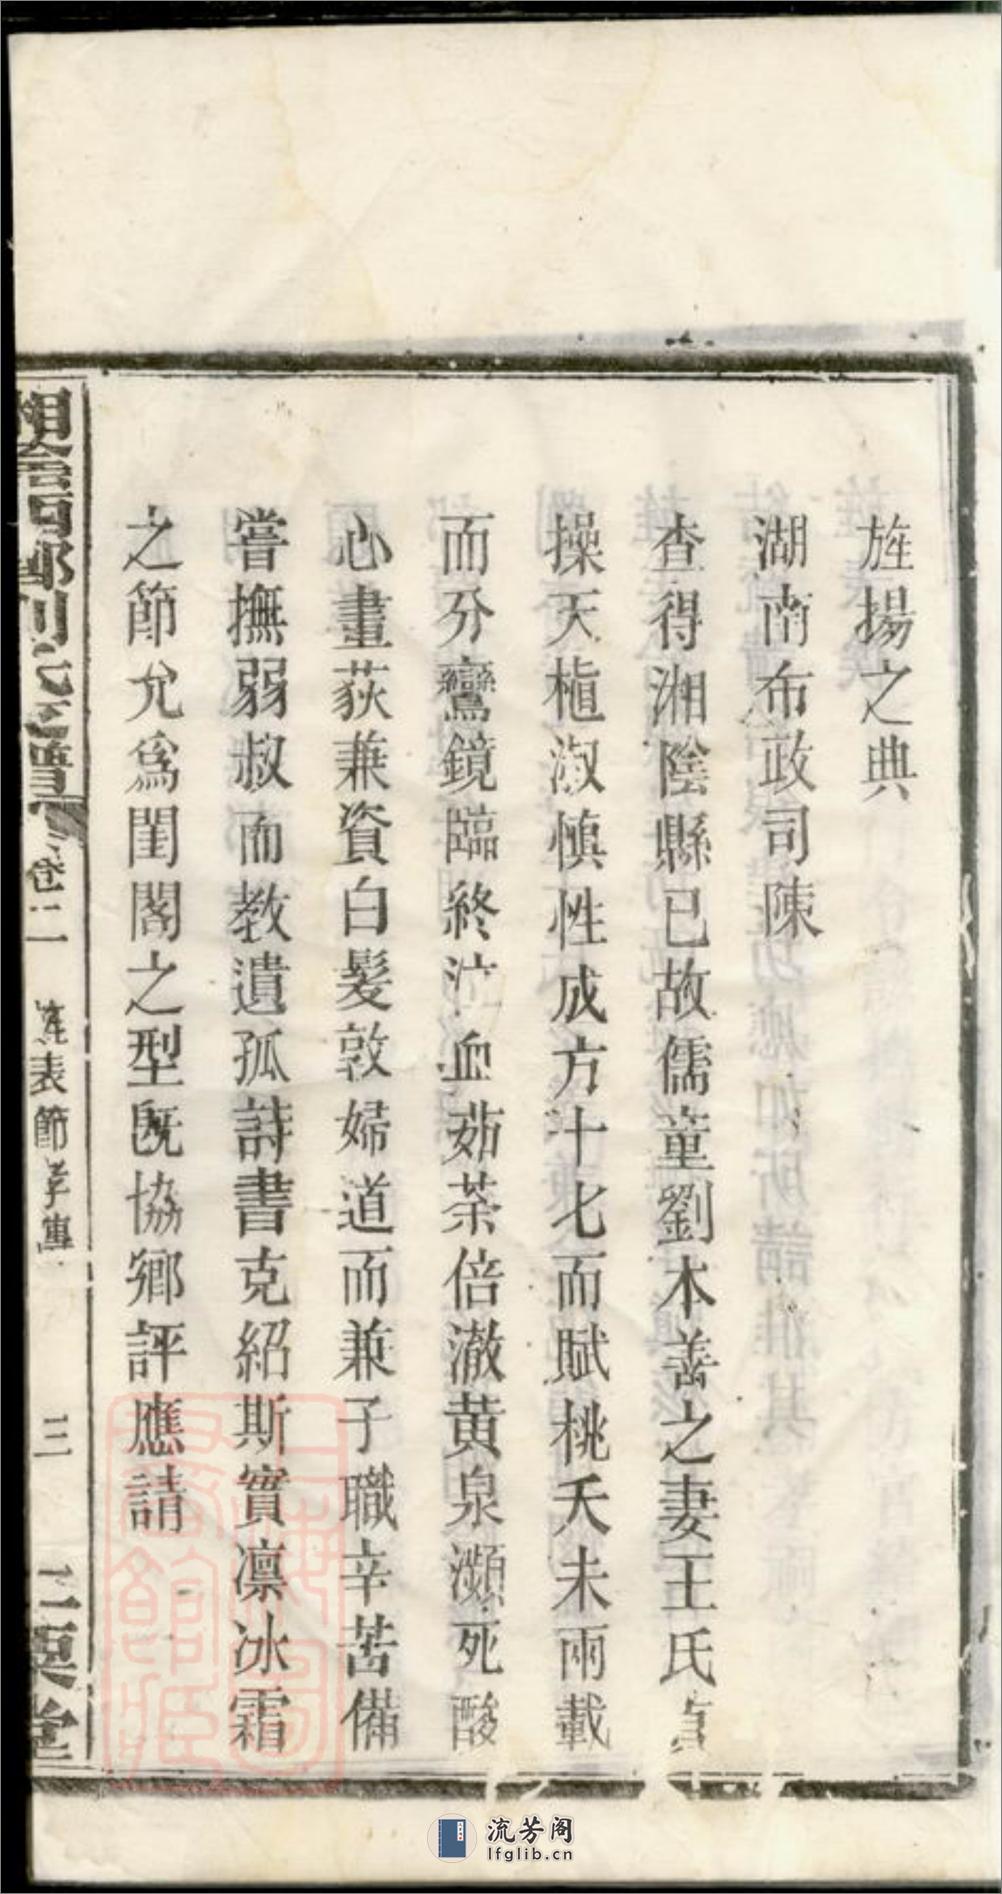 旌揚之典
湖南布政司陳
查得湘陰縣已故儒童劉本善之妻王氏貞
操天植淑慎性成方十七而賦桃夭未兩載
而分鸞鏡臨終泣血茹荼倍澈黃泉瀕死酸
心畫荻兼資白髮敦婦道而兼子職辛苦備
嘗撫弱叔而教遺孤詩書克紹斯實凛冰霜
之節允爲閨閣之型旣協鄉評應請
湘陰西鄉劉氏支譜 卷二 旌表節孝傳 三
上海圖書館藏
流芳阁
lfglib.cn